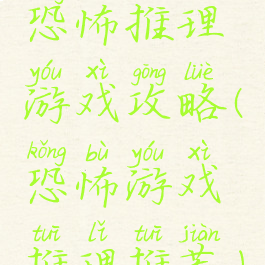 恐怖推理
yóu xì gōng lüè
游戏攻略(
kǒng bù yóu xì
恐怖游戏
tuī lǐ tuī jiàn
推理推荐)